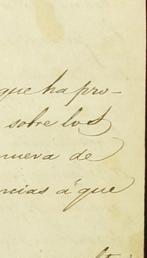 que ha pro-
sobre los
nueva de
ncias á que